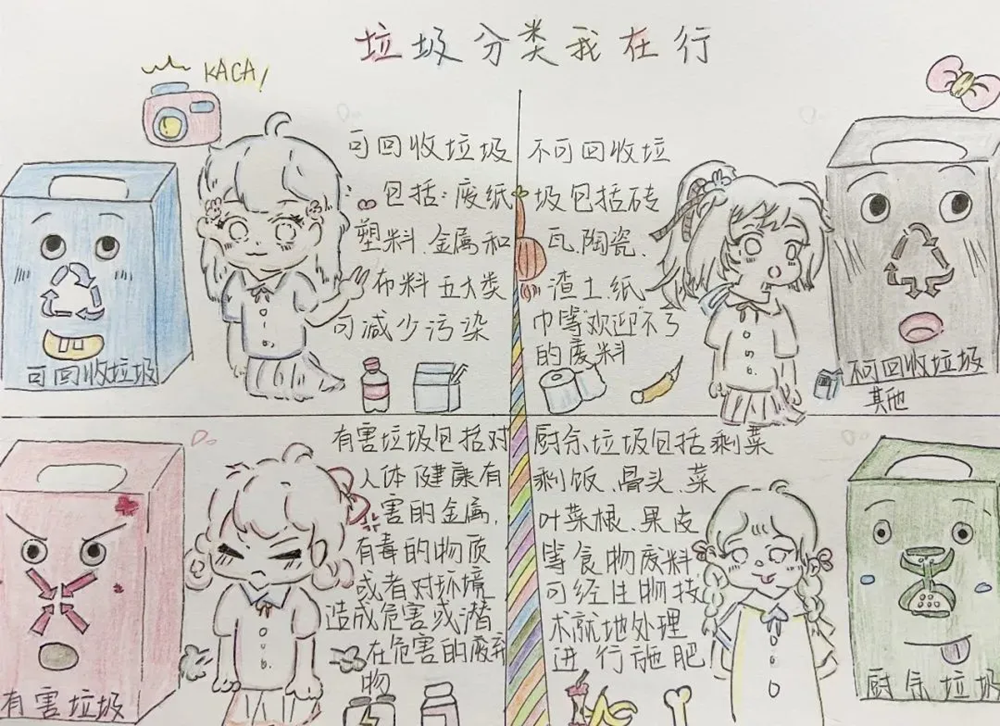 垃圾分类我在行
KACA!
可回收垃圾
包括:废纸
塑料.金属和
布料五大类
可减少污染
可回收垃圾
不可回收垃
圾包括砖
瓦.陶瓷.
渣土纸
巾等欢迎不了
的废料
不可回收垃圾
其他
有害垃圾包括对
人体健康有
害的金属,
有毒的物质
或者对环境
造成危害或潜
在危害的废弃
物
有害垃圾
厨余垃圾包括剩菜
剩饭、骨头、菜
叶菜根、果皮
等食物废料
可经生物技
术就地处理
进行施肥!
厨余垃圾